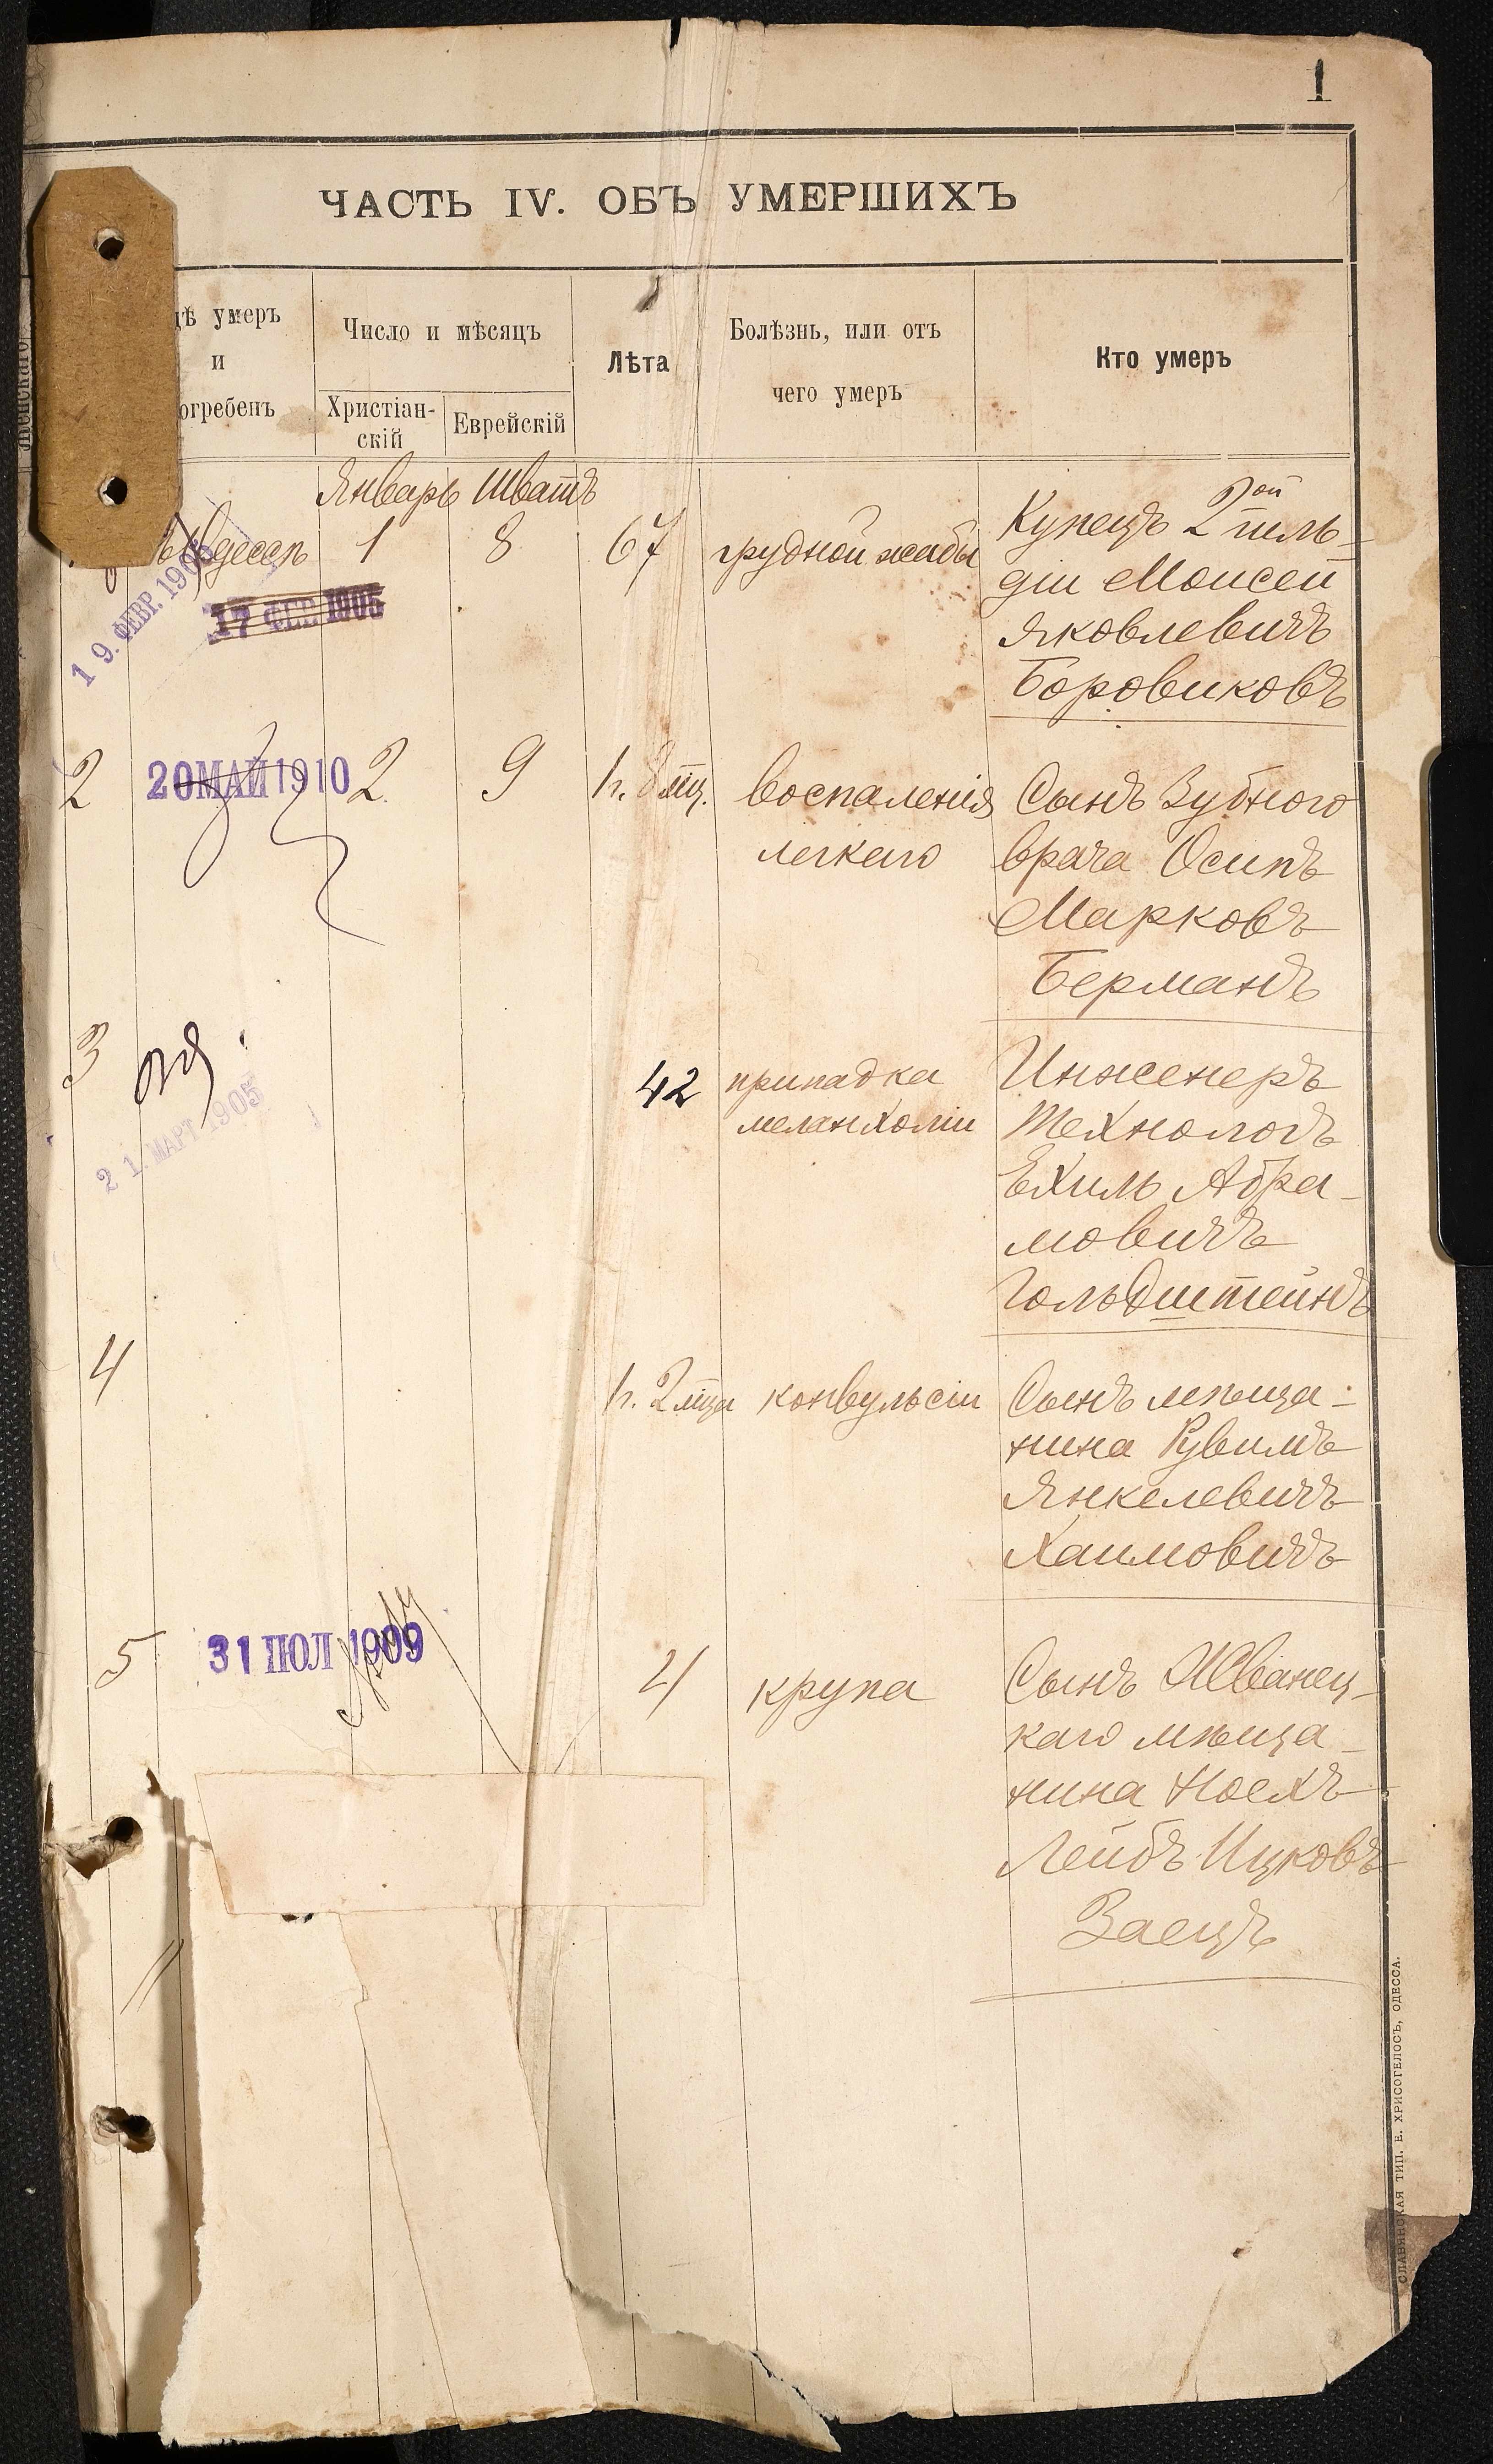 1
ЧАСТЬ IV. ОБЪ УМЕРШИХЪ
дѣ умеръ
и
огребенъ
Число и мѣсяцъ
Христіан-
скій
Еврейскій
Лѣта
Болѣзнь, или отъ
чего умеръ
Кто умеръ
Январь Шватъ
Одессѣ 1 8 67 грудной жабы
Купецъ 2ой гиль-
діи Моисей
Яковлевичъ
Боровиковъ
19. ФЕВР. 1905
17 ФЕВ 1905
2 20МАЙ1910 2. 9 1г. 8 мц. воспаленія
легкаго
Сынъ Зубного
врача Осипъ
Марковъ
Берманъ
3 42 припадка
меланхоліи
21. МАРТ. 1905
Инженеръ
Технологъ
Ехиль Абра-
мовичъ
Гольдштейнъ
4 1г. 2 мца конвульсіи
Сынъ мѣща-
нина Рувимъ
Янкелевичъ
Хаимовичъ
5 31 ІЮЛ 1909 4 крупа
Сынъ Жванец-
каго мѣща-
нина Ноехъ
Лейбъ Ицковъ
Заецъ
СЛАВЯНСКАЯ ТИП. Е. ХРИСОГЕЛОСЪ, ОДЕССА.